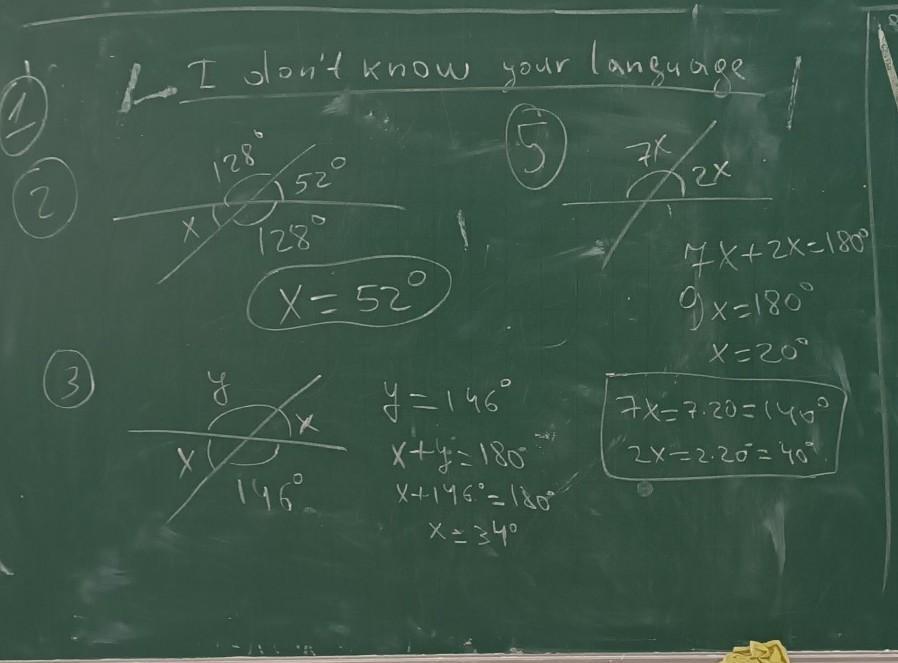 I don't know your language
1
2
128° 52°
x 128°
x = 52°
3
y
x
x
146°
y = 146°
x + y = 180°
x + 146° = 180°
x = 34°
5
7x 2x
7x + 2x = 180°
9x = 180°
x = 20°
7x = 7.20 = 140°
2x = 2.20 = 40°